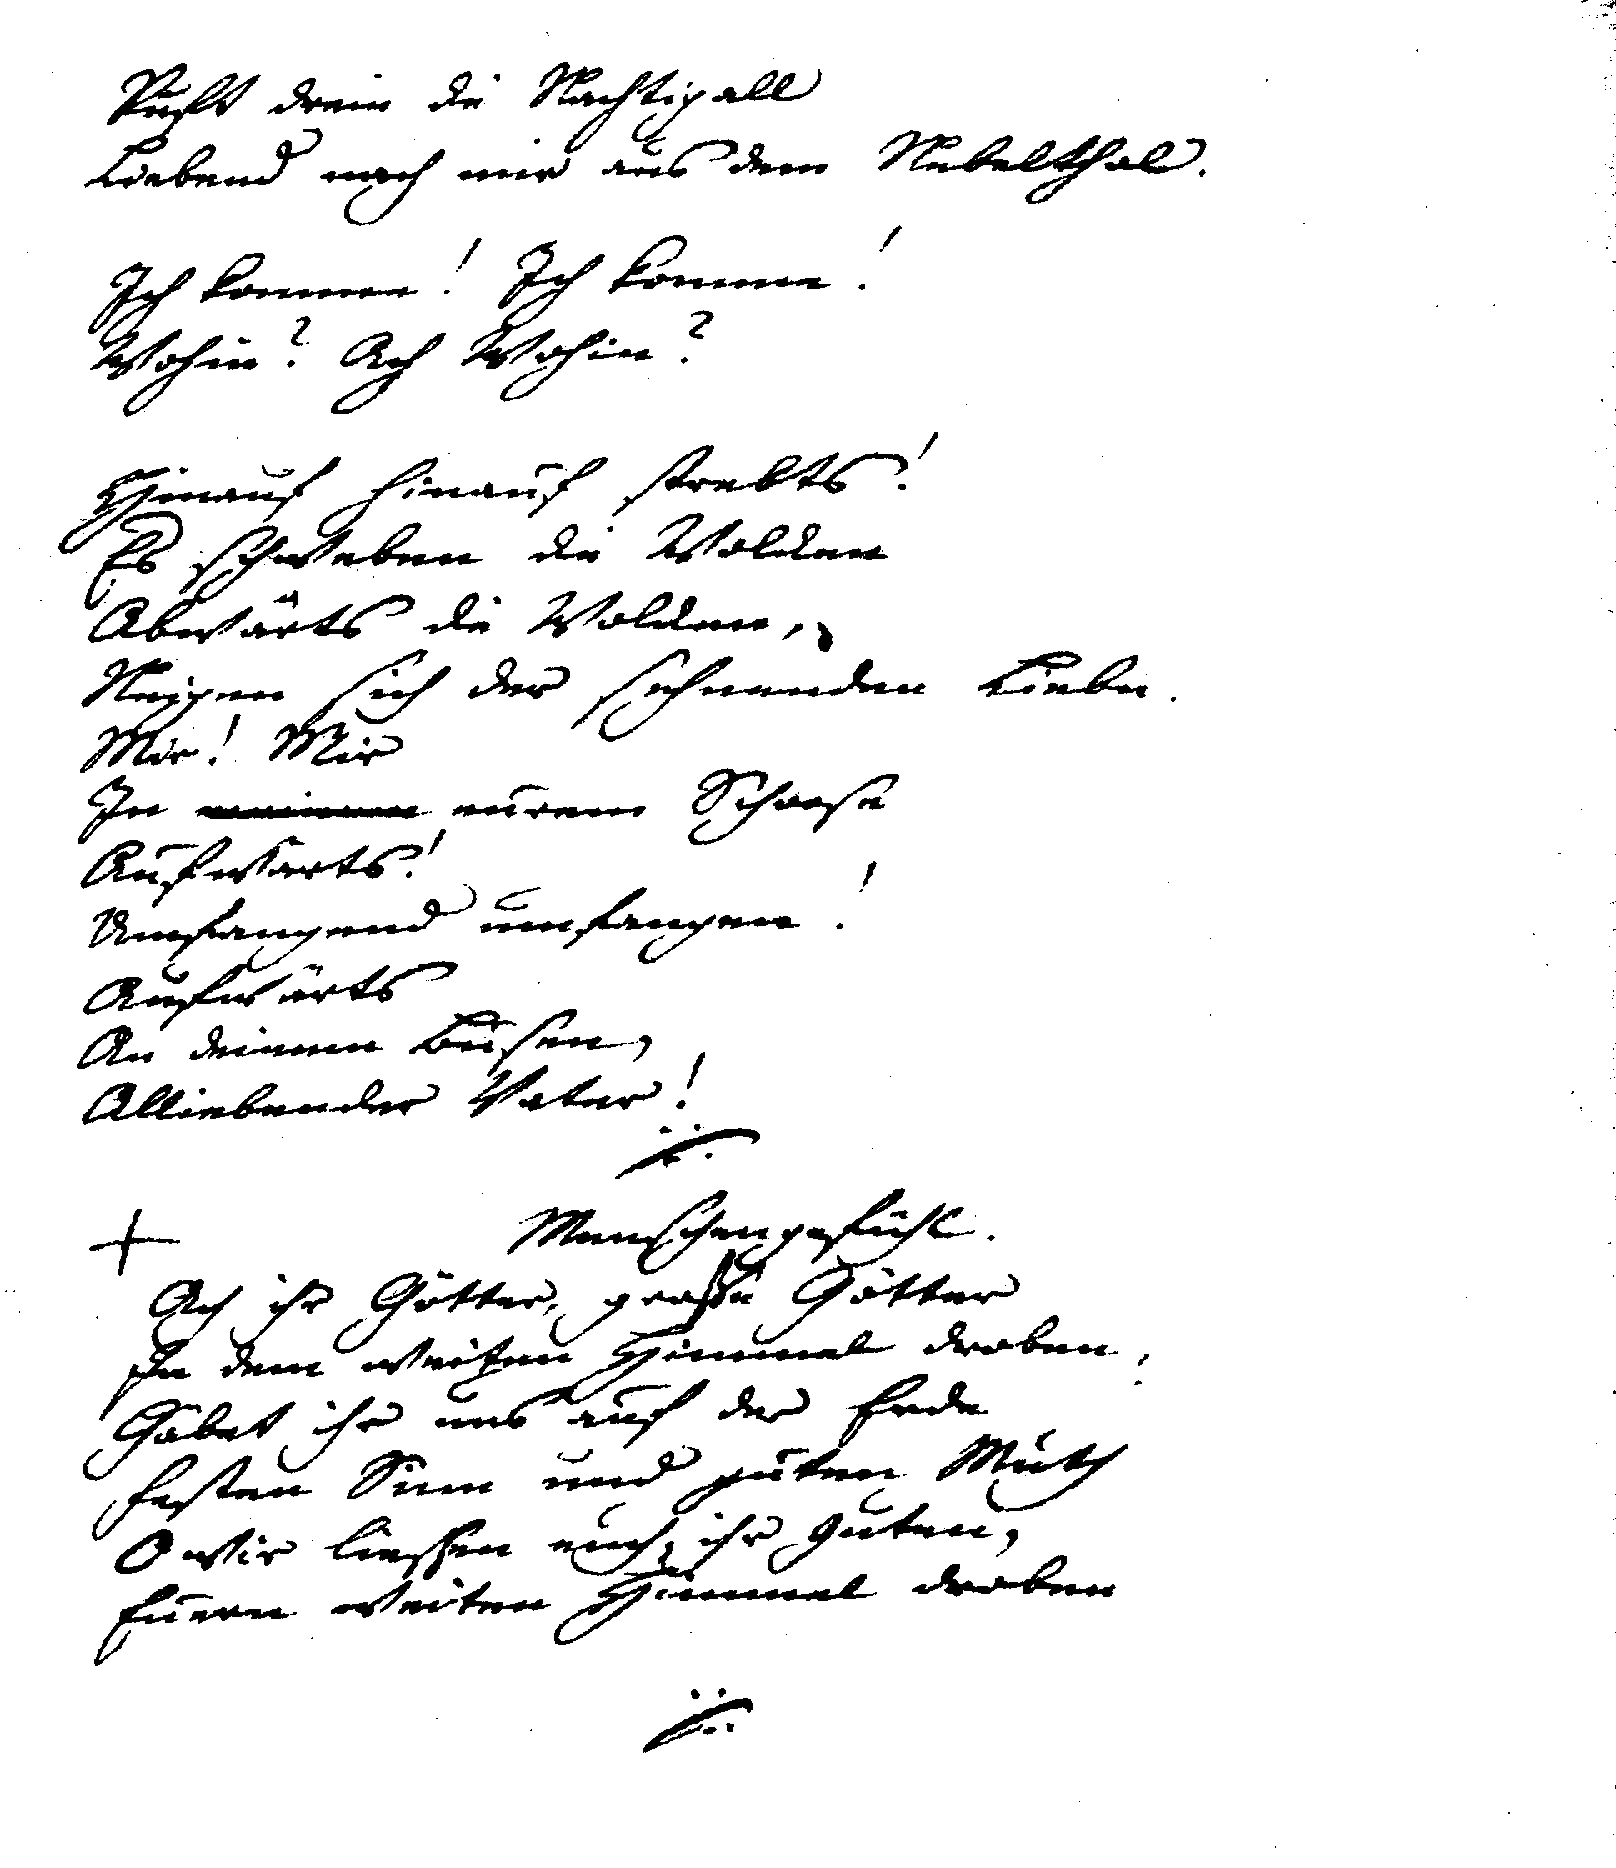 Ruft drein die Nachtigall
Liebend nach mir aus dem Nebelthal.
Ich komme! Ich komme!
Wohin? Ach Wohin?
Hinauf hinauf strebts!
Es schweben die Wolcken
Abwärts die Wolcken,
Neigen sich der sehnenden Liebe.
Mir! Mir
In eurem Schoose
Aufwärts!
Umfangend umfangen!
Aufwärts
An deinem Busen,
Alliebender Vater!
Menschengefühl.
Ach ihr Götter, grosse Götter
In dem weiten Himmel droben,
Gäbet ihr uns auf der Erde
Festen Sinn und guten Muth
O wir liessen euch, ihr Guten,
Euern weiten Himmel droben